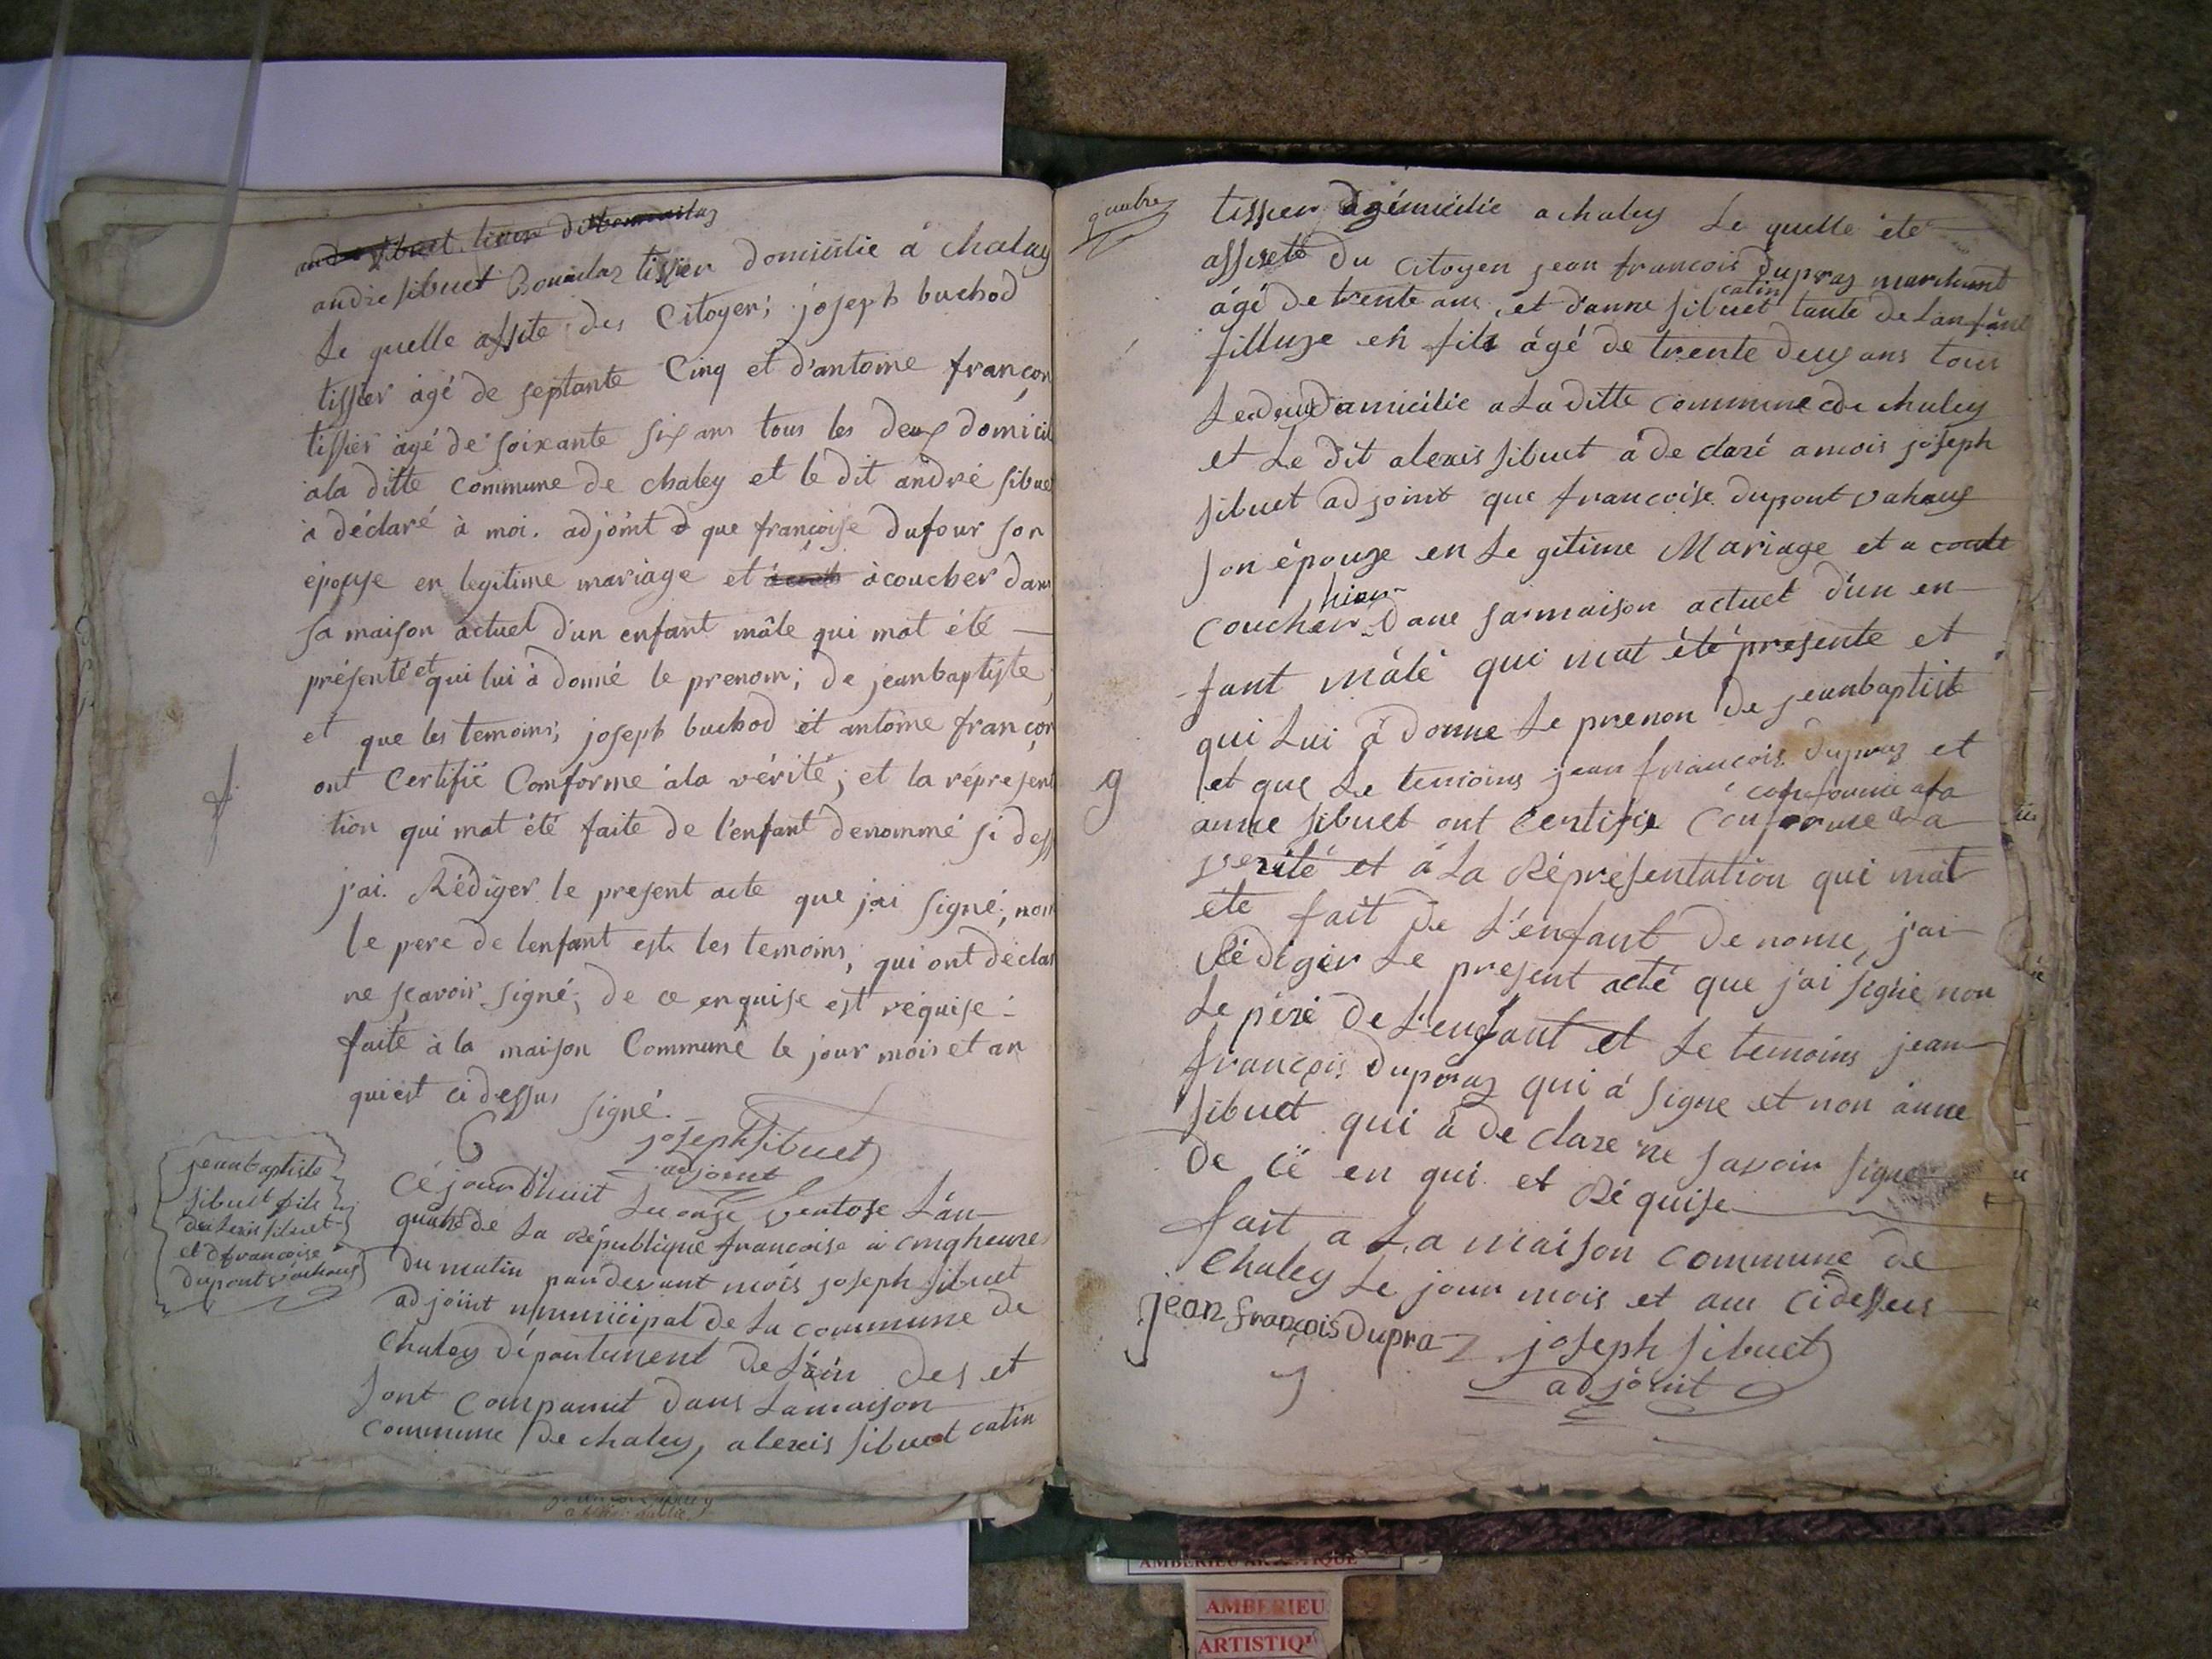 andré sibuet Bouvilas tissier domicilié à chaley
Le quelle assite des Citoyens; joseph buchod
tissier agé de septante Cinq et d'antoine françon
tissier agé de soixante six ans tous les deux domicil
ala ditte commune de chaley et le dit andré sibuet
à déclaré à moi. adjoint que françoise dufour son
épouse en legitime mariage et àcoucher dans
sa maison actuel d'un enfant mâle qui mat été
présenté et qui lui à donné le prenom; de jeanbaptiste
et que les temoins; joseph buchod et antoine françon
ont Certifié Comforme àla vérité; et la répresent
tion qui mat été faite de l'enfant denommé si dess
j'ai. Rédiger le present acte que j'ai signé; non
le pere de lenfant est les temoins; qui ont déclar
ne sçavoir signé; de ce enquise est réquise.
faite à la maison Commune le jour mois et an
qui est ci dessus signé.
joseph sibuet
adjoint
jeanbaptiste
sibuet fils
sibuet
et d francoise
dupont vahaus
Cé jour d'huit Le onze ventose L'an
quatre de La République francoise a cinq heure
du matin pardevant mois joseph sibuet
adjoint municipal de La commune de
Chaley département de L'ain des et
sont comparut dans Lamaison
commune de chaley, alexis sibuet catin
quatre
tissier domicilié a chaley Le quelle été
assisté du Citoyen jean francois dupraz marchant
catin
âgé de trente ans et d'anne sibuet tante de Lanfant
filluze en fils âgé de trente deux ans tous
Les deux domicilié a La ditte commune de chaley
et Le dit alexis sibuet à de claré a mois joseph
sibuet adjoint que francoise dupont vahaus
son épouze en Le gitime Mariage et a
hier
coucher Dans sa maison actuel d'un en
fant mâlé qui mat été présente et
qui Lui à donne Le prenon de jeanbaptiste
et que Le temoins jean francois dupraz et
conforme a la
9
anne sibuet ont Certifie Conforme a La
verité et à La Réprésentation qui mat
été fait de L'enfant de nome, j'ai
Rédiger Le present acté que j'ai signé non
Le péré de L'enfant et Le temoins jean
françois dupraz qui à signe et non anne
sibuet qui à de clare ne savoir signe
de cé en qui et Ré quise
fait a La maison commune de
Chaley Le jour mois et an cidessus
jean françois Dupraz
joseph sibuet
adjoint
AMBERIEU ARTISTIQUE
AMBERIEU
ARTISTIQU